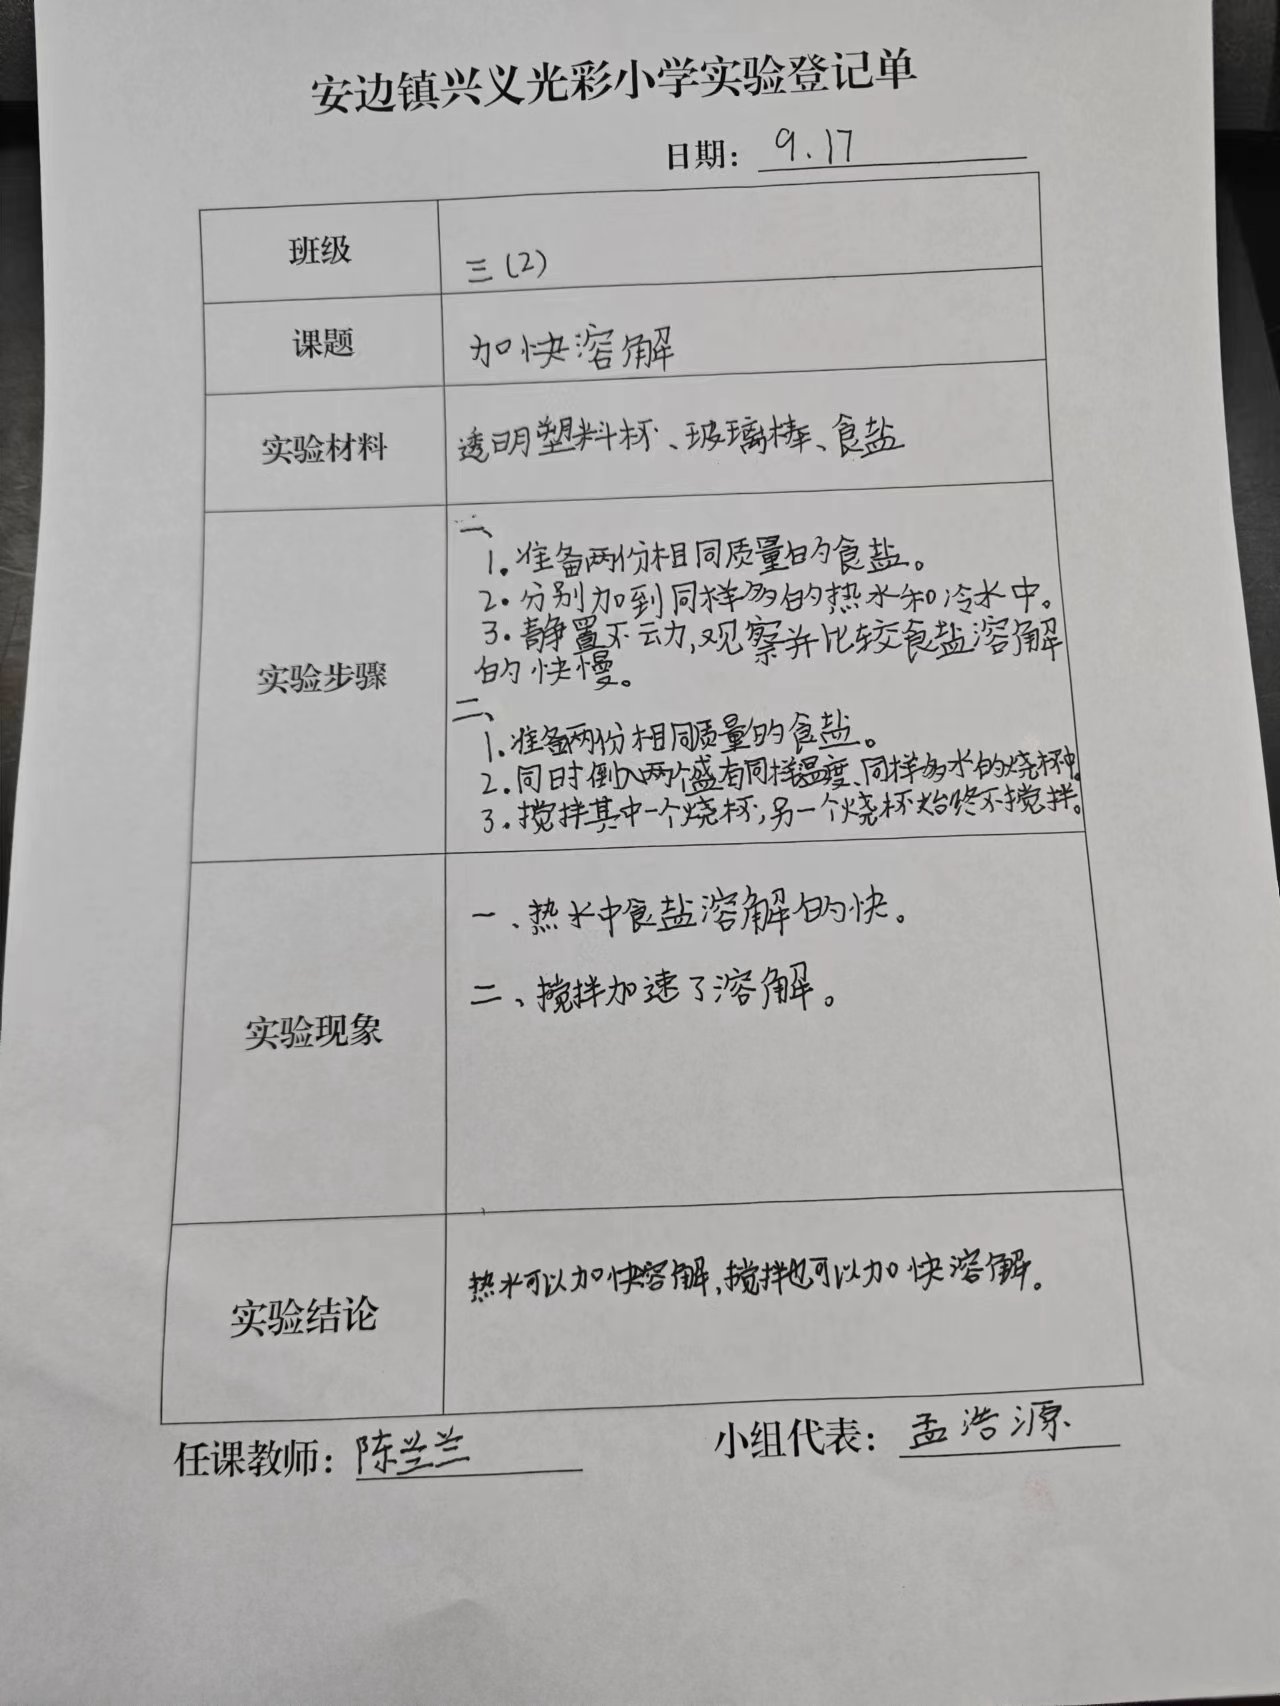 安边镇兴义光彩小学实验登记单
日期：9.17
班级
三（2）
课题
加快溶解
实验材料
透明塑料杯、玻璃棒、食盐
实验步骤
一、
1.准备两份相同质量的食盐。
2.分别加到同样多的热水和冷水中。
3.静置不动,观察并比较食盐溶解
的快慢。
二、
1.准备两份相同质量的食盐。
2.同时倒入两个盛有同样温度、同样多水的烧杯中。
3.搅拌其中一个烧杯,另一个烧杯始终不搅拌。
实验现象
一、热水中食盐溶解的快。
二、搅拌加速了溶解。
实验结论
热水可以加快容解,搅拌也可以加快溶解。
任课教师：陈兰兰
小组代表：孟浩源